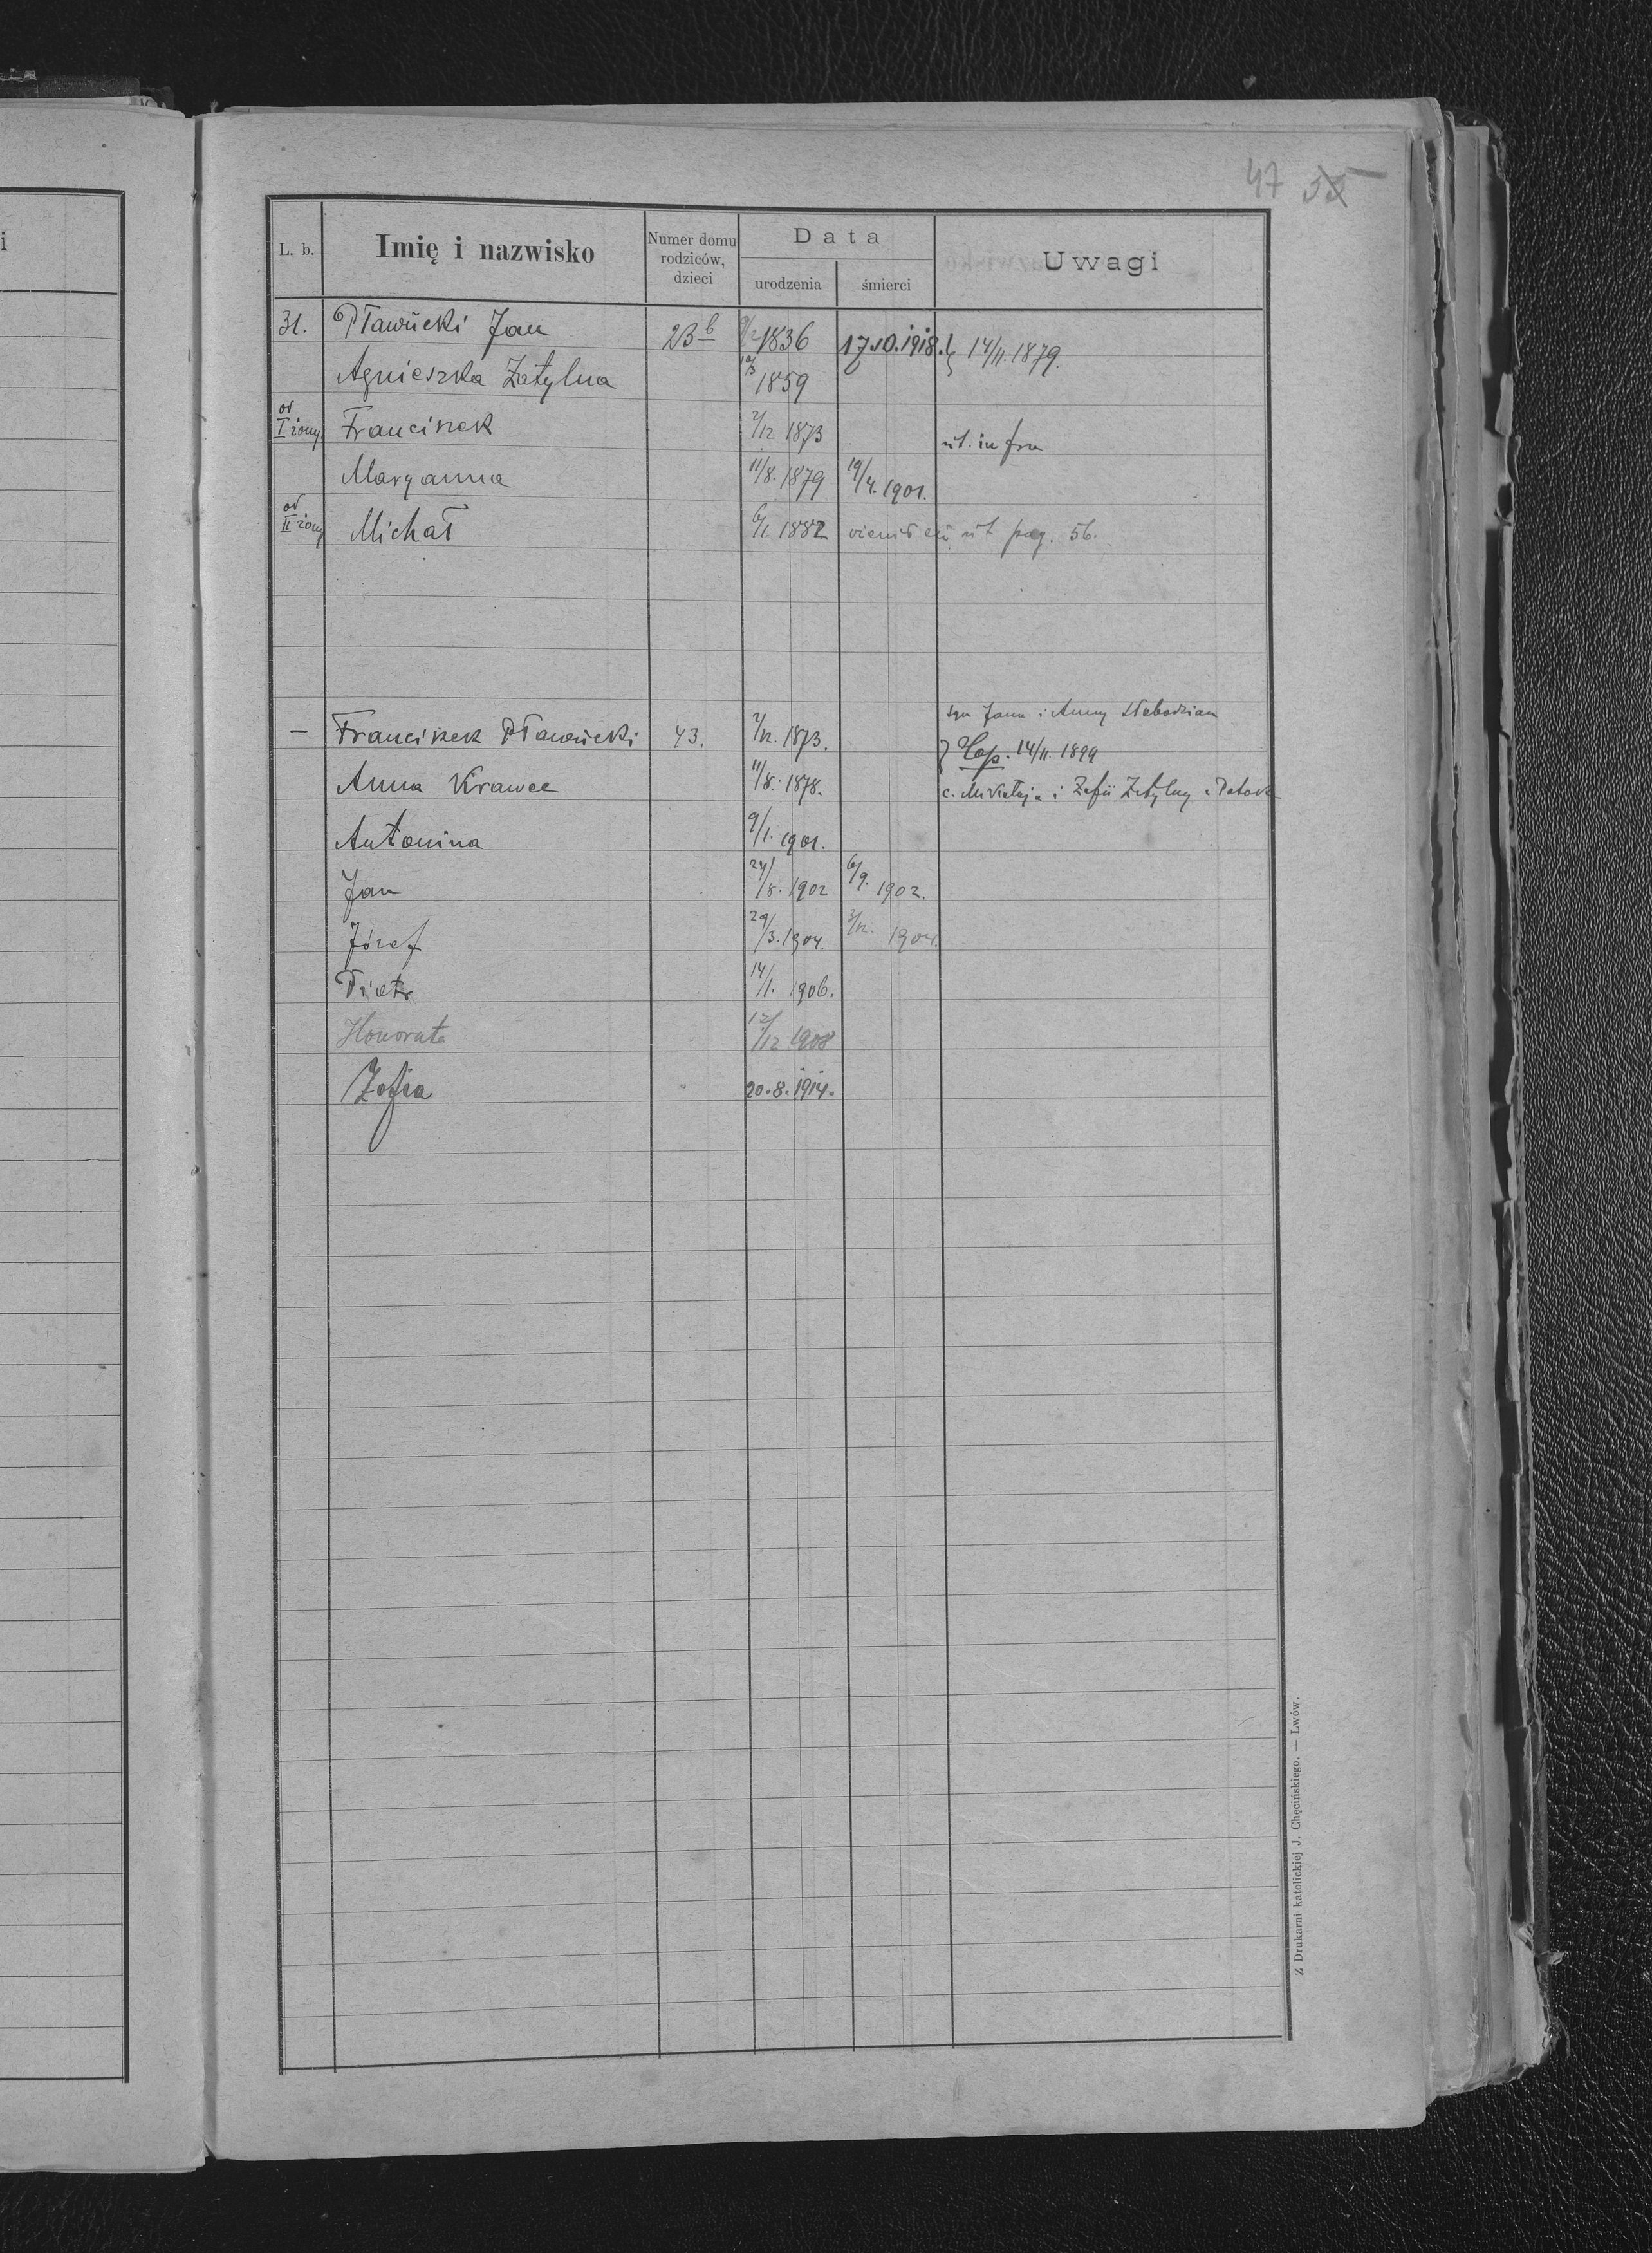 47 55
i
L. b. Imię i nazwisko Numer domu rodziców, dzieci Data urodzenia śmierci Uwagi
31. Pławúcki Jan 23 b 1836 17.10.1918. 14/11. 1879.
Agnieszka Zatylna 10/3 1859
od I żony Franciszek 2/12 1873 ut. infra
Maryanna 11/8. 1879 19/4. 1901.
od II żony Michał 6/1. 1882 ut pag. 56.
syn Jana i Anny Słabodzian
— Franciszek Pławúcki 43. 2/12. 1873. Cop. 14/11. 1899
Anna Krawec 11/8. 1878. c. Mikołaja i Zofii Zatylny z
Antonina 9/1. 1901.
Jan 24/8. 1902 6/9. 1902.
Józef 29/3. 1904. 3/12. 1904.
Piotr 14/1. 1906.
Honorata 12/12 1908
Zofia 20.8.1914.
Z Drukarni katolickiej J. Chęcińskiego. — Lwów.